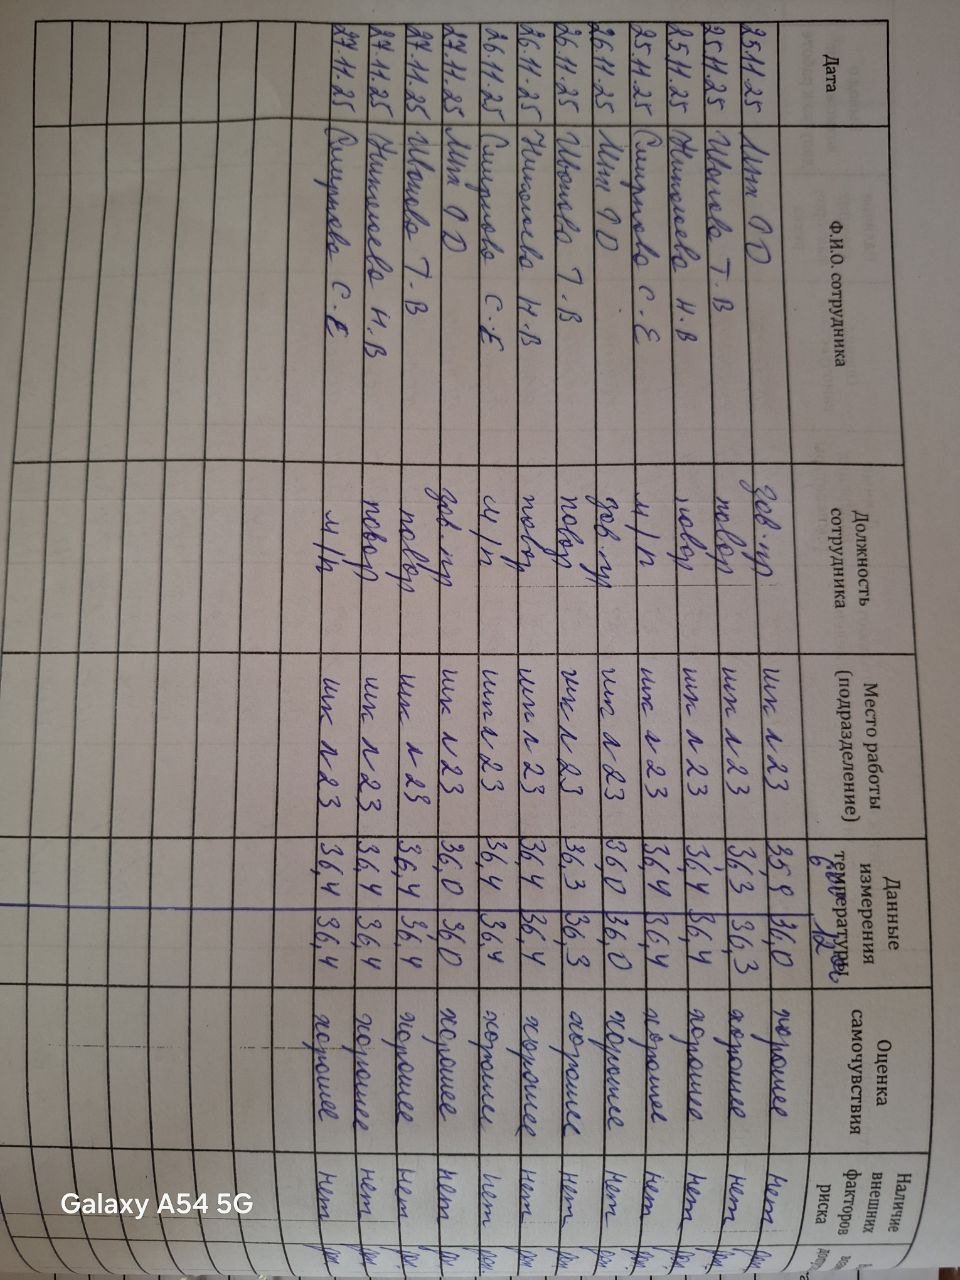 Дата Ф.И.О. сотрудника Должность сотрудника Место работы (подразделение) Данные измерения температуры Оценка самочувствия Наличие внешних факторов риска
12
25.11.25 зав.пр шк л 23 35,9 36,0 хорошее нет
25.11.25 Иванова Т.В повар шк л 23 36,3 36,3 хорошее нет
25.11.25 Николаева Н.В повар шк л 23 36,4 36,4 хорошее нет
25.11.25 Смирнова С.Е м/п шк л 23 36,4 36,4 хорошее нет
26.11.25 зав.пр шк л 23 36,0 36,0 хорошее нет
26.11.25 Иванова Т.В повар шк л 23 36,3 36,3 хорошее нет
26.11.25 Николаева Н.В повар шк л 23 36,4 36,4 хорошее нет
26.11.25 Смирнова С.Е м/п шк л 23 36,4 36,4 хорошее нет
27.11.25 зав.пр шк л 23 36,0 36,0 хорошее нет
27.11.25 Иванова Т.В повар шк л 23 36,4 36,4 хорошее нет
27.11.25 Николаева Н.В повар шк л 23 36,4 36,4 хорошее нет
27.11.25 Смирнова С.Е м/п шк л 23 36,4 36,4 хорошее нет
Galaxy A54 5G